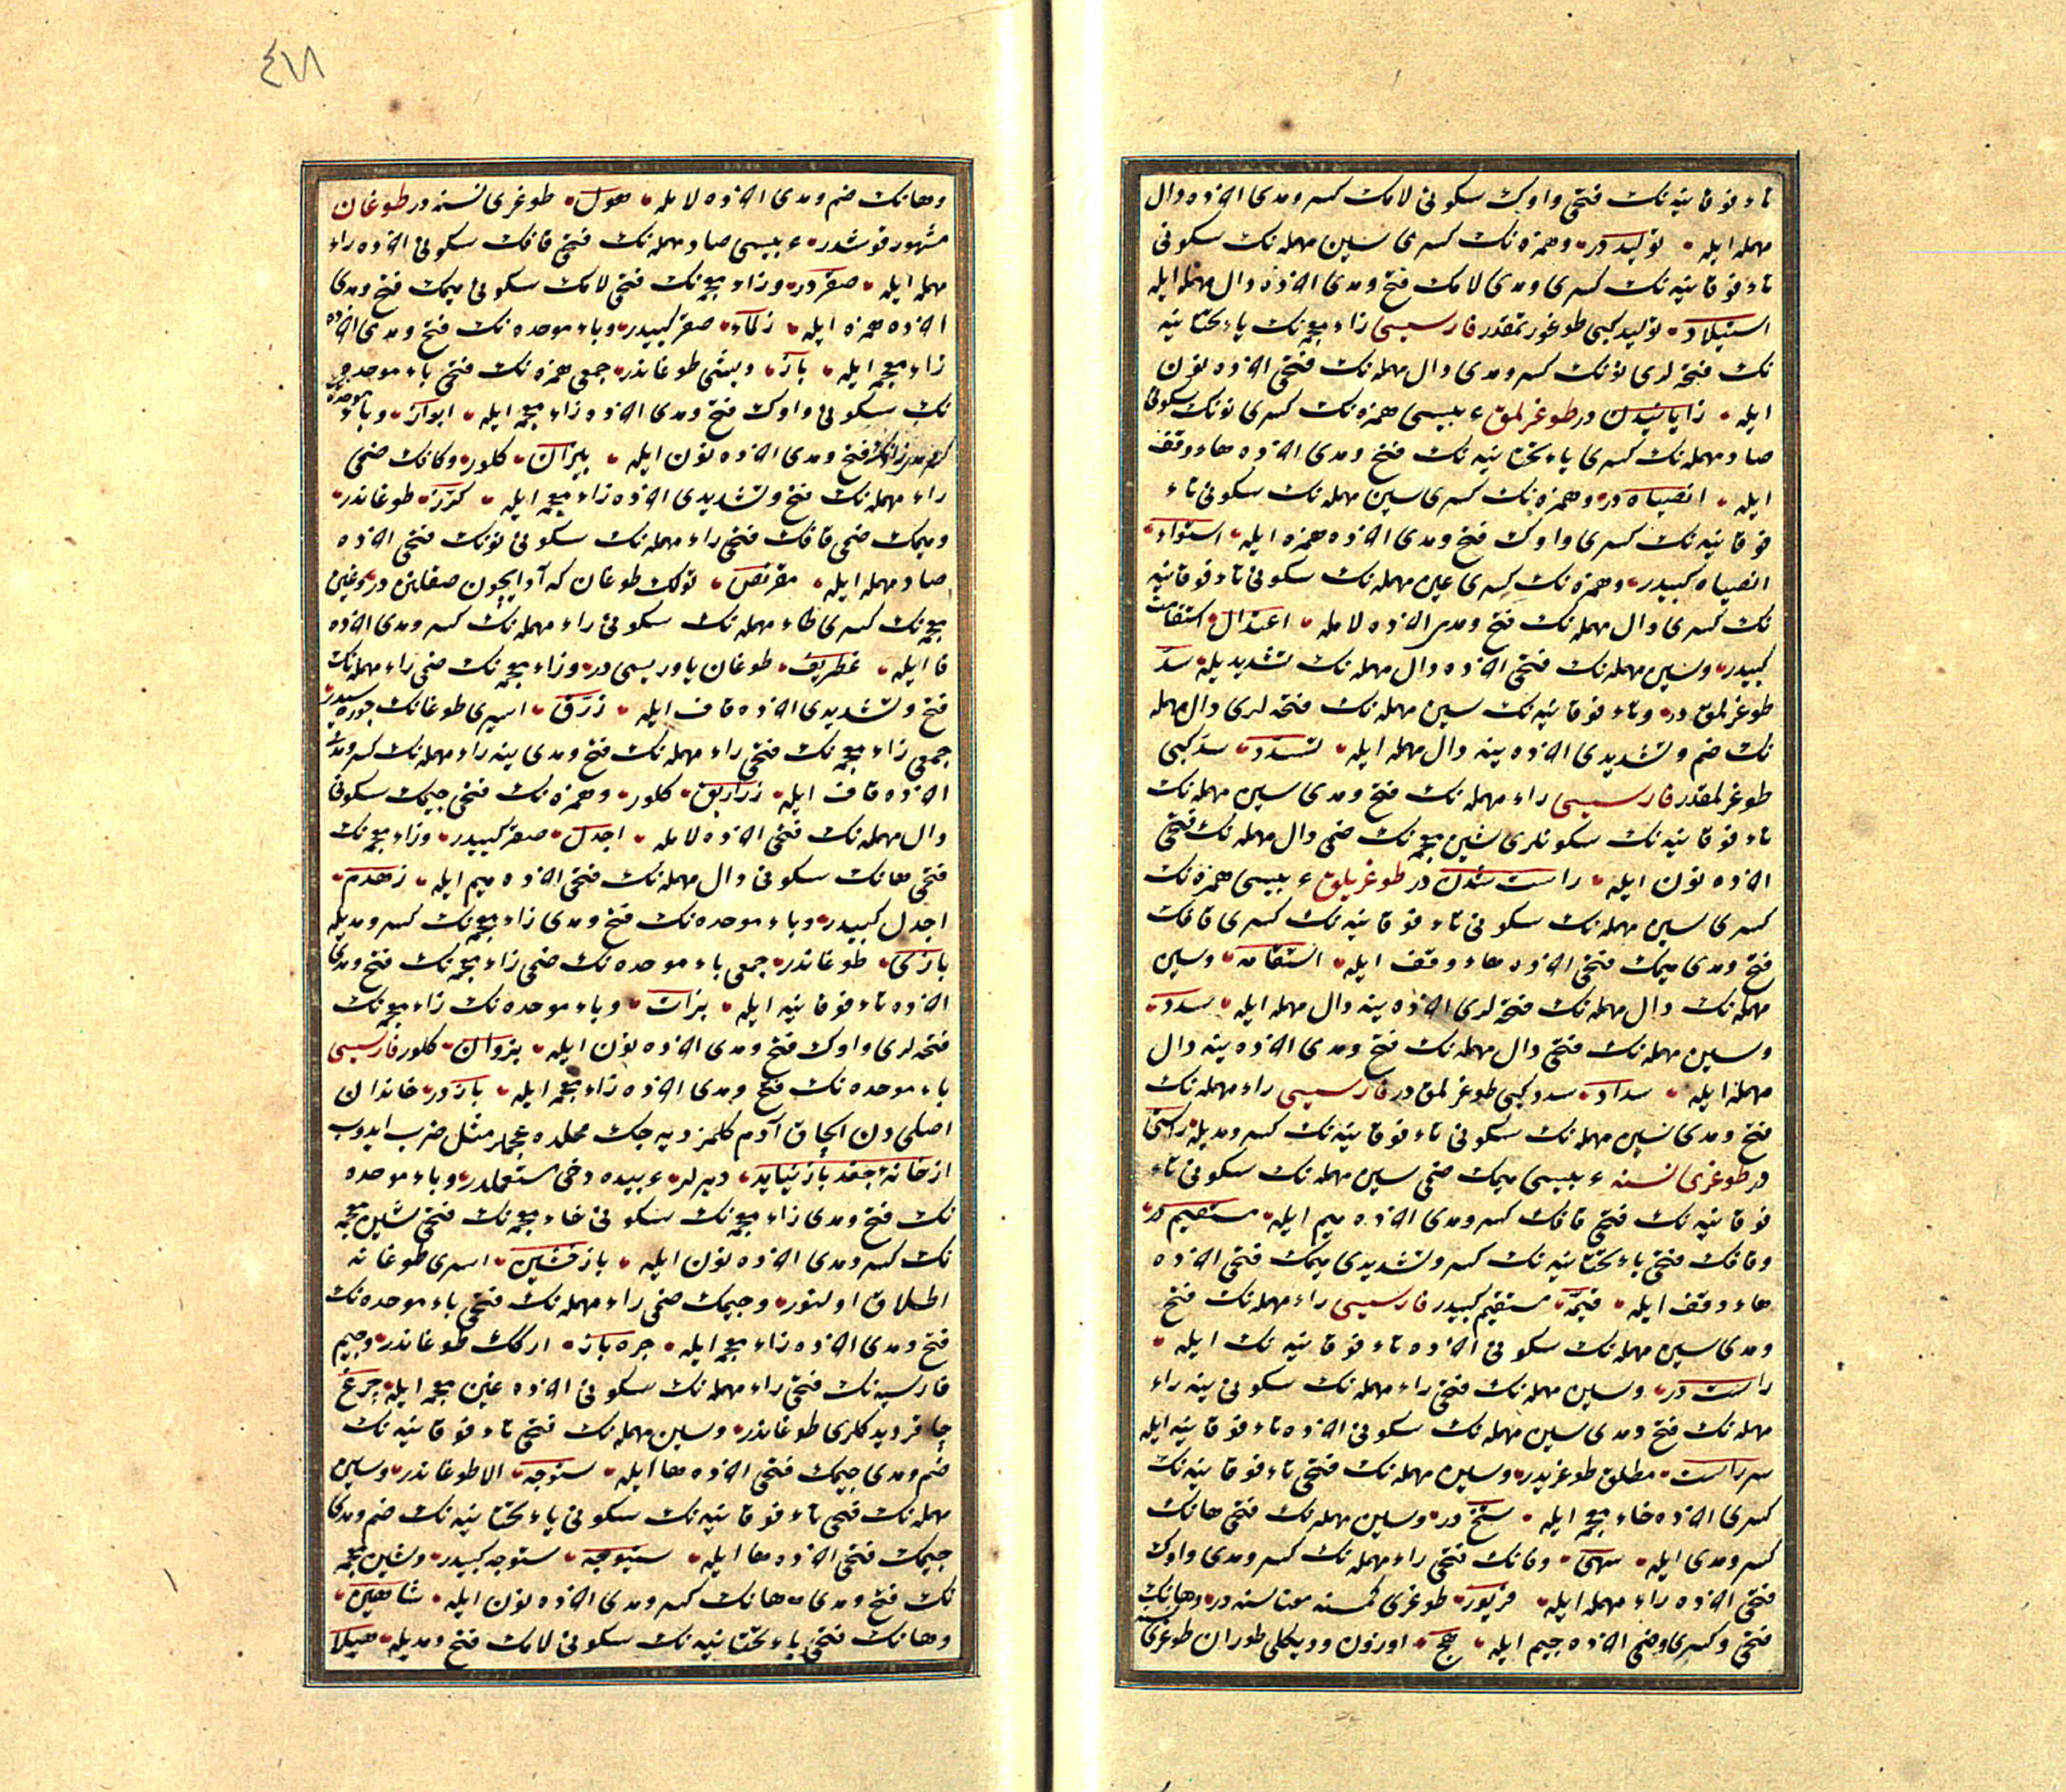 تاء فوقانیه نك فتحی واوك سکونی لامك کسر ومدی اخرده دال
مهمله ایله توليددر وهمزه نك کسری سین مهمله نك سکونی
تاء فوقانیه نك کسری ومدی لامك فتح ومدی اخرده دال مهمله ایله
استيلاد توليد کبی طوغورتمقدر فارسیسی زاء معجمه نك یاء تحتانیه
نك فتحه لری نونك کسر ومدی دال مهمله نك فتحی اخرده نون
ایله زایانیدن در طوغرلمق عربیسی همزه نك کسری نونك سکونی
صاد مهمله نك کسری یاء تحتانیه نك فتح ومدی اخرده هاء وقف
ایله انصیاه در وهمزه نك کسری سین مهمله نك سکونی تاء
فوقانیه نك کسری واوك فتح ومدی اخرده همزه ایله استواء
انصیاه کبیدر وهمزه نك کسری عین مهمله نك سکونی تاء فوقانیه
نك کسری دال مهمله نك فتح ومدی اخرده لامله اعتدال استقامت
کبیدر وسین مهمله نك فتحی اخرده دال مهمله نك تشدیدیله سدّ
طوغرلمق در وتاء فوقانیه نك سین مهمله نك فتحه لری دال مهمله
نك ضم وتشدیدی اخرده ینه دال مهمله ایله تسدّد سد کبی
طوغرلمقدر فارسیسی راء مهمله نك فتح ومدی سین مهمله نك
تاء فوقانیه نك سکونلری شین معجمه نك ضمی دال مهمله نك فتحی
اخرده نون ایله راست شدن در طوغریلق عربیسی همزه نك
کسری سین مهمله نك سکونی تاء فوقانیه نك کسری قافك
فتح ومدی میمك فتحی اخرده هاء وقف ایله استقامه وسین
مهمله نك دال مهمله نك فتحه لری اخرده ینه دال مهمله ایله سدد
وسین مهمله نك فتحی دال مهمله نك فتح ومدی اخرده ینه دال
مهمله ایله سداد سدد کبی طوغرلمق در فارسیسی راء مهمله نك
فتح ومدی سین مهمله نك سکونی تاء فوقانیه نك کسر ومدیله راستی
در طوغری نسنه عربیسی میمك ضمی سین مهمله نك سکونی تاء
فوقانیه نك فتحی قافك کسر ومدی اخرده میم ایله مستقیم در
وقافك فتحی یاء تحتانیه نك کسر وتشدیدی میمك فتحی اخرده
هاء وقف ایله قیّمه مستقیم کبیدر فارسیسی راء مهمله نك فتح
ومدی سین مهمله نك سکونی اخرده تاء فوقانیه نك ایله
راست در وسین مهمله نك فتحی راء مهمله نك سکونی ینه راء
مهمله نك فتح ومدی سین مهمله نك سکونی اخرده تاء فوقانیه ایله
سرراست مطلق طوغریدر وسین مهمله نك فتحی تاء فوقانیه نك
کسری اخرده خاء معجمه ایله ستخ در وسین مهمله نك فتحی هانك
کسر ومدی ایله سهی وفانك فتحی راء مهمله نك کسر ومدی واوك
فتحی اخرده راء مهمله ایله فریور طوغری نسنه در وهانك
فتحی وکسری وضمی اخرده جیم ایله هج اوزون ودیکلی طوران طوغری
٤١٨
وهانك ضم ومدی اخرده لامله هول طوغری نسنه در طوغان
مشهور قوشدر عربیسی صاد مهمله نك فتحی قافك سکونی اخرده راء
مهمله ایله صقر در وزاء معجمه نك فتحی لامك سکونی میمك فتح ومدی
اخرده همزه ایله زلماء صقر کبیدر وباء موحده نك فتح ومدی اخرده
زاء معجمه ایله باز طوغاندر جمعی همزه نك فتحی باء موحده
نك سکونی واوك فتح ومدی اخرده زاء معجمه ایله ابواز وباء موحده
فتح ومدی اخرده نون ایله بیزان کلور وکافك ضمی
راء مهمله نك فتح وتشدیدی اخرده زاء معجمه ایله کرّز طوغاندر
ومیمك ضمی قافك فتحی راء مهمله نك سکونی نونك فتحی اخرده
صاد مهمله ایله مقرنص تولك طوغان که آو ایچون صقلانر در وغین
معجمه نك کسری طاء مهمله نك سکونی راء مهمله نك کسر ومدی اخرده
فا ایله غطریف طوغان یاوریسی در وزاء معجمه نك ضمی راء مهمله نك
فتح وتشدیدی اخرده قاف ایله زرّق اسپری طوغانك
جمعی زاء معجمه نك فتحی راء مهمله نك فتح ومدی ینه راء مهمله نك کسر ومدی
اخرده قاف ایله زراریق کلور وهمزه نك فتحی جیمك سکونی
دال مهمله نك فتحی اخرده لامله اجدل صقر کبیدر وزاء معجمه نك
فتحی هانك سکونی دال مهمله نك فتحی اخرده میم ایله زهدم
اجدل کبیدر وباء موحده نك فتح ومدی زاء معجمه نك کسر ومدیله
بازی طوغاندر جمعی باء موحده نك ضمی زاء معجمه نك فتح ومدی
اخرده تاء فوقانیه ایله بزات وباء موحده نك زاء معجمه نك
فتحه لری واوك فتح ومدی اخرده نون ایله بزوان کلور فارسیسی
باء موحده نك فتح ومدی اخرده زاء معجمه ایله باز در خاندان
اصلی دن الچاق آدم کلمز دیه جك محلده عجملر مثل ضرب ایدوب
از خانهٔ جغد باز نیاید دیرلر عربیده دخی مستعملدر وباء موحده
نك فتح ومدی زاء معجمه نك سکونی خاء معجمه نك فتحی شین معجمه
نك کسر ومدی اخرده نون ایله بازخشین اسری طوغانه
اطلاق اولنور وجیمك ضمی راء مهمله نك فتحی باء موحده نك
فتح ومدی اخرده زاء معجمه ایله جره باز ارکك طوغاندر وجیم
فارسیه نك فتحی راء مهمله نك سکونی اخرده غین معجمه ایله چرغ
چاقر دیدکلری طوغاندر وسین مهمله نك فتحی تاء فوقانیه نك
ضم ومدی جیمك فتحی اخرده ها ایله ستوجه الا طوغاندر وسین
مهمله نك فتحی تاء فوقانیه نك سکونی یاء تحتانیه نك ضم ومدی
جیمك فتحی اخرده ها ایله ستیوجه ستوجه کبیدر وشین معجمه
نك فتح ومدی هانك کسر ومدی اخرده نون ایله شاهین
وهانك فتحی یاء تحتانیه نك سکونی لامك فتح ومدیله هیلا